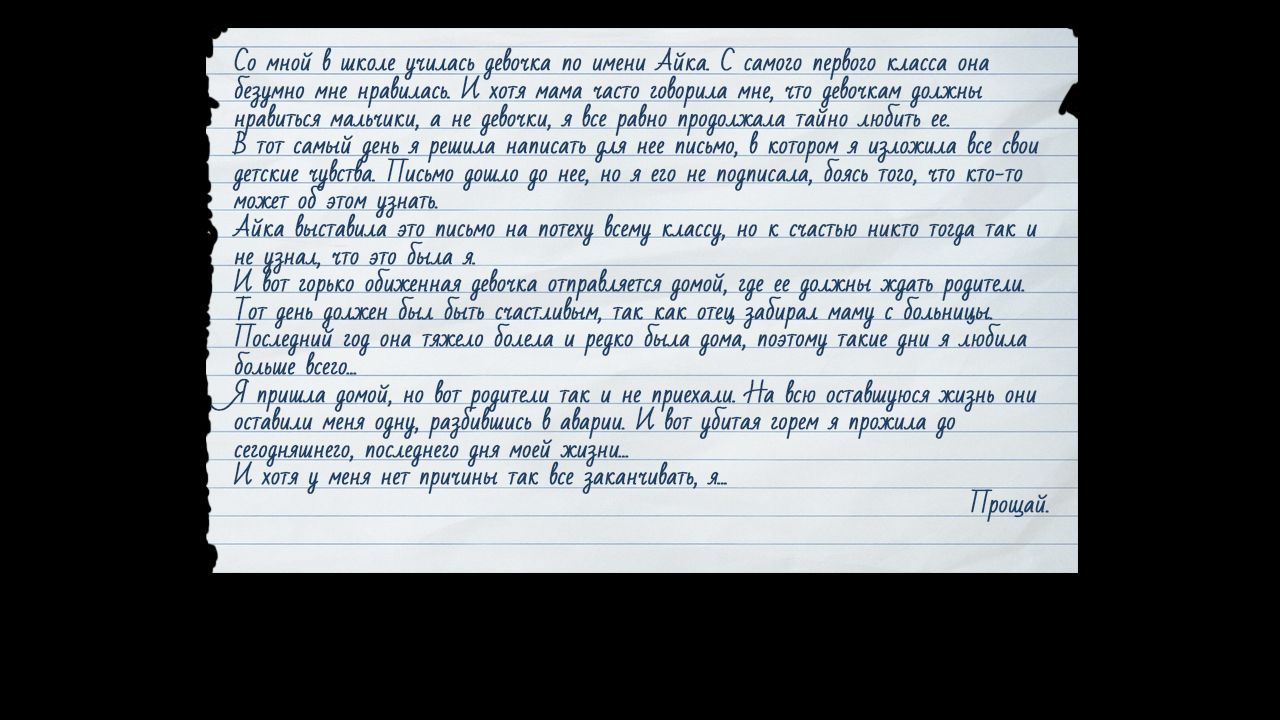 Со мной в школе училась девочка по имени Айка. С самого первого класса она
безумно мне нравилась. И хотя мама часто говорила мне, что девочкам должны
нравиться мальчики, а не девочки, я все равно продолжала тайно любить ее.
В тот самый день я решила написать для нее письмо, в котором я изложила все свои
детские чувства. Письмо дошло до нее, но я его не подписала, боясь того, что кто-то
может об этом узнать.
Айка выставила это письмо на потеху всему классу, но к счастью никто тогда так и
не узнал, что это была я.
И вот горько обиженная девочка отправляется домой, где ее должны ждать родители.
Тот день должен был быть счастливым, так как отец забирал маму с больницы.
Последний год она тяжело болела и редко была дома, поэтому такие дни я любила
больше всего...
Я пришла домой, но вот родители так и не приехали. На всю оставшуюся жизнь они
оставили меня одну, разбившись в аварии. И вот убитая горем я прожила до
сегодняшнего, последнего дня моей жизни...
И хотя у меня нет причины так все заканчивать, я...
Прощай.